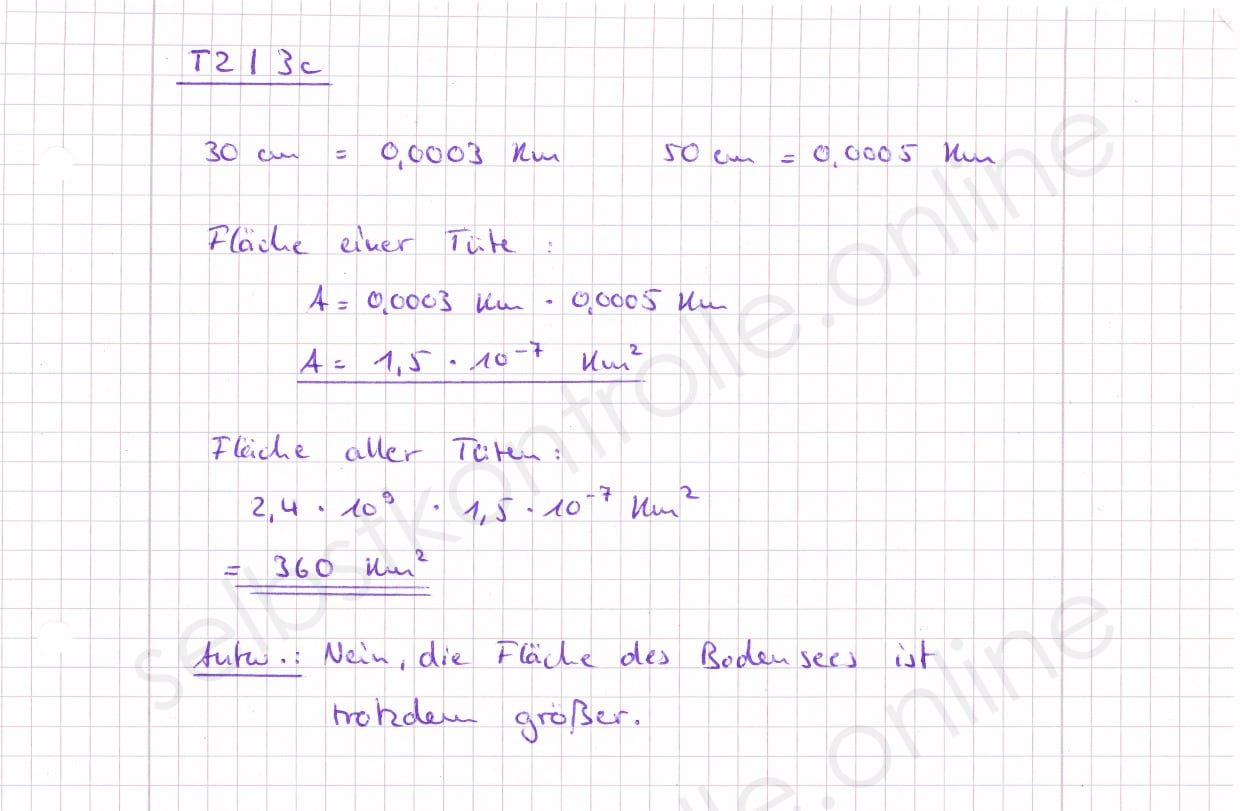 T2 | 3c
30 cm = 0,0003 Km 50 cm = 0,0005 Km
Fläche einer Tüte :
A = 0,0003 Km · 0,0005 Km
A = 1,5 · 10⁻⁷ Km²
Fläche aller Tüten :
2,4 · 10⁹ · 1,5 · 10⁻⁷ Km²
= 360 Km²
Antw.: Nein, die Fläche des Bodensees ist
trotzdem größer.
selbstkontrolle.online
online